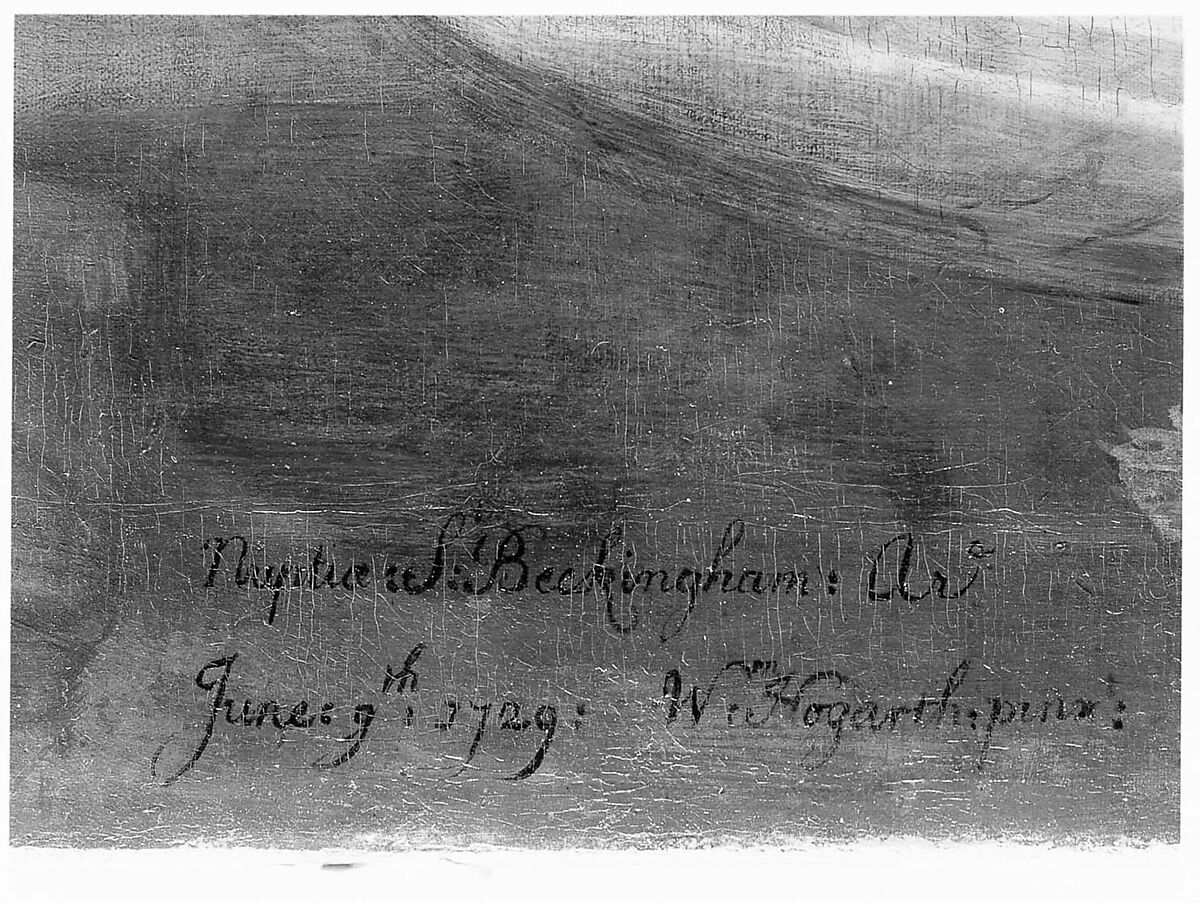 Nuptiæ: Sn: Beckingham: Arr
June: 9th: 1729: Wm: Hogarth: pinxt: